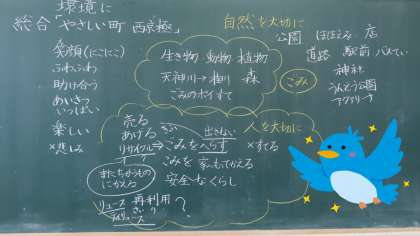 環境に
総合「やさしい町 西京極」
自然を大切に
笑顔(にこにこ)
ふわふわ
助け合う
あいさつ
いっぱい
楽しい
×悲しみ
生き物 動物 植物
天神川→桂川 森
ごみのポイすて
ごみ
公園 ほほえみ 店
道路 駅前 バスてい
神社
うんどう公園
アクアリーナ
売る
あげる
リサイクル⇒ごみをへらす
出さない
人を大切に
×すてる
ごみを 家へもってかえる
安全なくらし
またちがうものに
かえる
リユース 再利用
さいりよう
リデュース
?